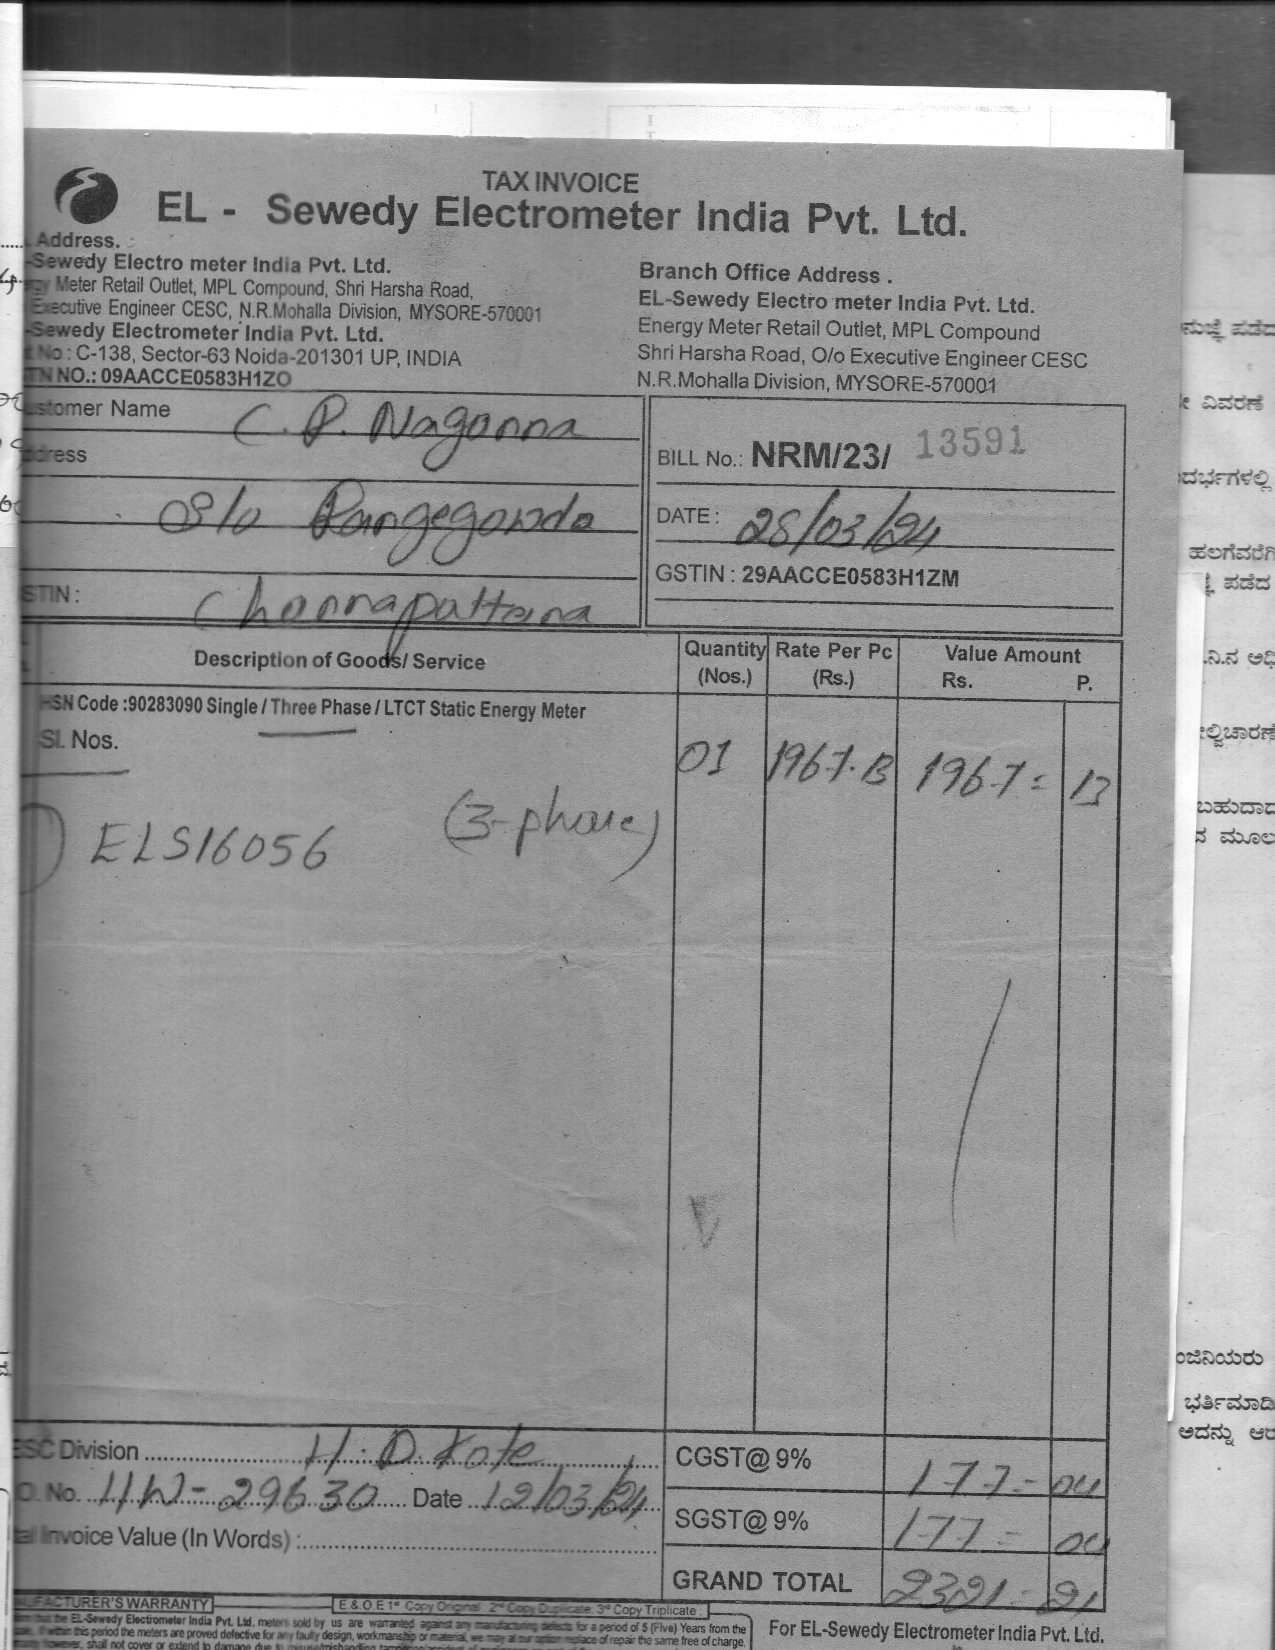 TAX INVOICE
EL - Sewedy Electrometer India Pvt. Ltd.
Address.
-Sewedy Electro meter India Pvt. Ltd.
Meter Retail Outlet, MPL Compound, Shri Harsha Road,
Executive Engineer CESC, N.R.Mohalla Division, MYSORE-570001
-Sewedy Electrometer India Pvt. Ltd.
No : C-138, Sector-63 Noida-201301 UP, INDIA
TN NO.: 09AACCE0583H1ZO
Branch Office Address .
EL-Sewedy Electro meter India Pvt. Ltd.
Energy Meter Retail Outlet, MPL Compound
Shri Harsha Road, O/o Executive Engineer CESC
N.R.Mohalla Division, MYSORE-570001
ustomer Name C. P. Naganna
dress
S/o Rangegowda
STIN : Channapattana
BILL No.: NRM/23/ 13591
DATE : 28/03/24
GSTIN : 29AACCE0583H1ZM
Description of Goods/ Service Quantity (Nos.) Rate Per Pc (Rs.) Value Amount Rs. P.
HSN Code :90283090 Single / Three Phase / LTCT Static Energy Meter
Sl. Nos. 01 1967.13 1967= 13
ELS16056 (3-phase)
ESC Division H.D.Kote CGST@ 9% 177= 04
O. No. HW-29630 Date 12/03/24 SGST@ 9% 177= 04
tal Invoice Value (In Words) :
GRAND TOTAL 2321= 21
MANUFACTURER'S WARRANTY E & O.E 1st Copy Original 2nd Copy Duplicate 3rd Copy Triplicate :
the EL-Sewedy Electrometer India Pvt. Ltd. meters sold by us are warranted against any manufacturing defects for a period of 5 (Five) Years from the
If within this period the meters are proved defective for any faulty design, workmanship or material, we may at our option replace of repair the same free of charge.
however, shall not cover or extend to damage due to
For EL-Sewedy Electrometer India Pvt. Ltd.
ಪಡೆದ
ವಿವರಣೆ
ಹಲಗೆವರೆಗಿ
ಪಡೆದ
ಬಹುದಾದ
ಮೂಲ
ಂಜಿನಿಯರು
ಭರ್ತಿಮಾಡಿ
ಅದನ್ನು